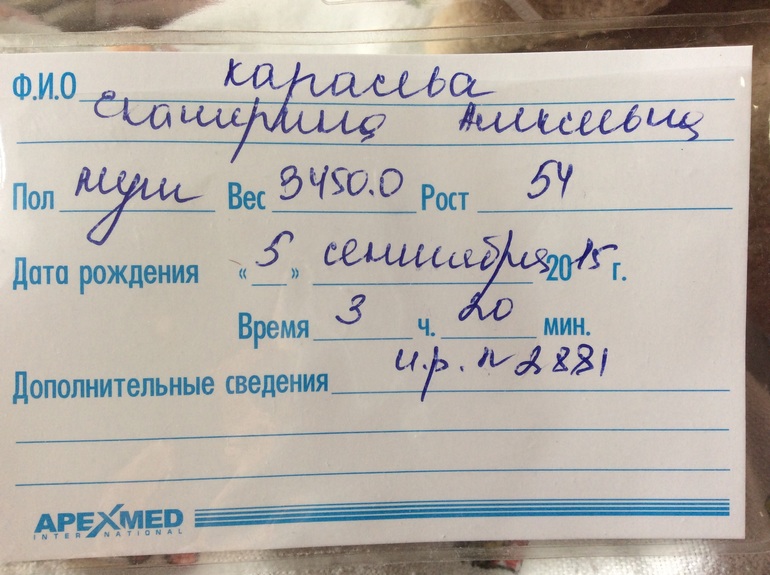 Ф.И.О Карасева
Екатерина Алексеевна
Пол муж Вес 3450.0 Рост 54
Дата рождения «5» сентября 2015 г.
Время 3 ч. 20 мин.
Дополнительные сведения и.р. № 2881
APEXMED
INTERNATIONAL